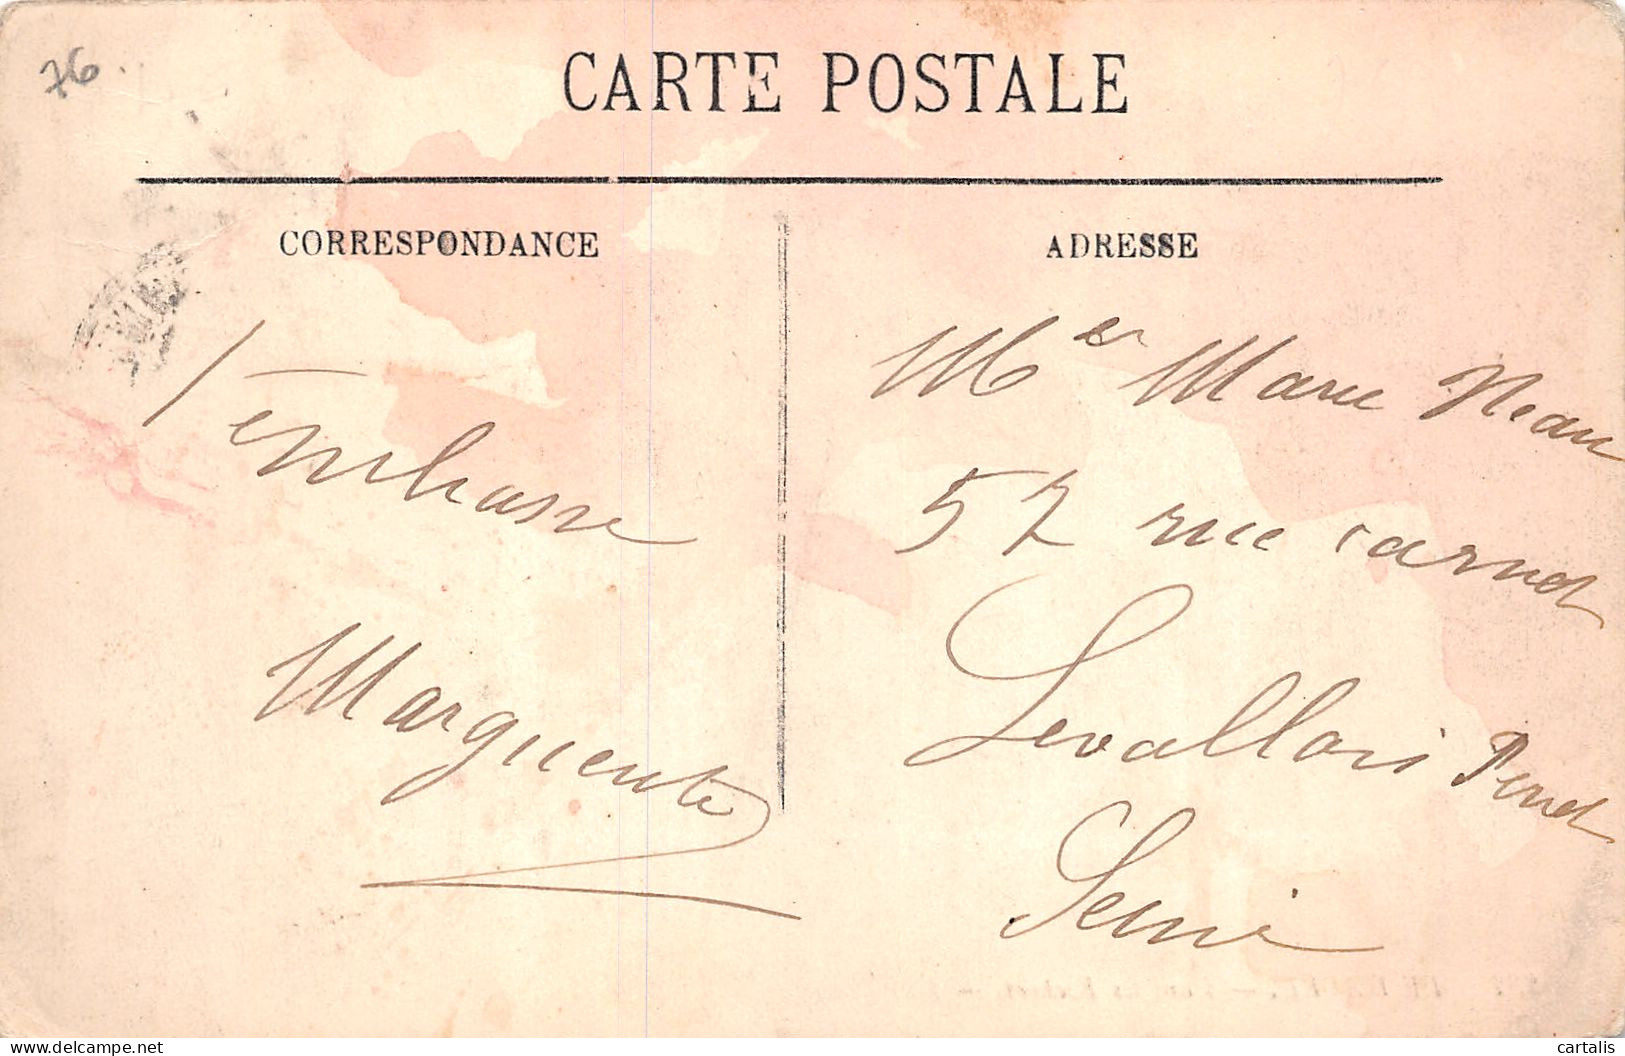 76
CARTE POSTALE
CORRESPONDANCE
T'embrasse
Marguerite
ADRESSE
Melle Marie Neau
57 rue Carnot
Levallois Perret
Seine
www.delcampe.net
cartalis